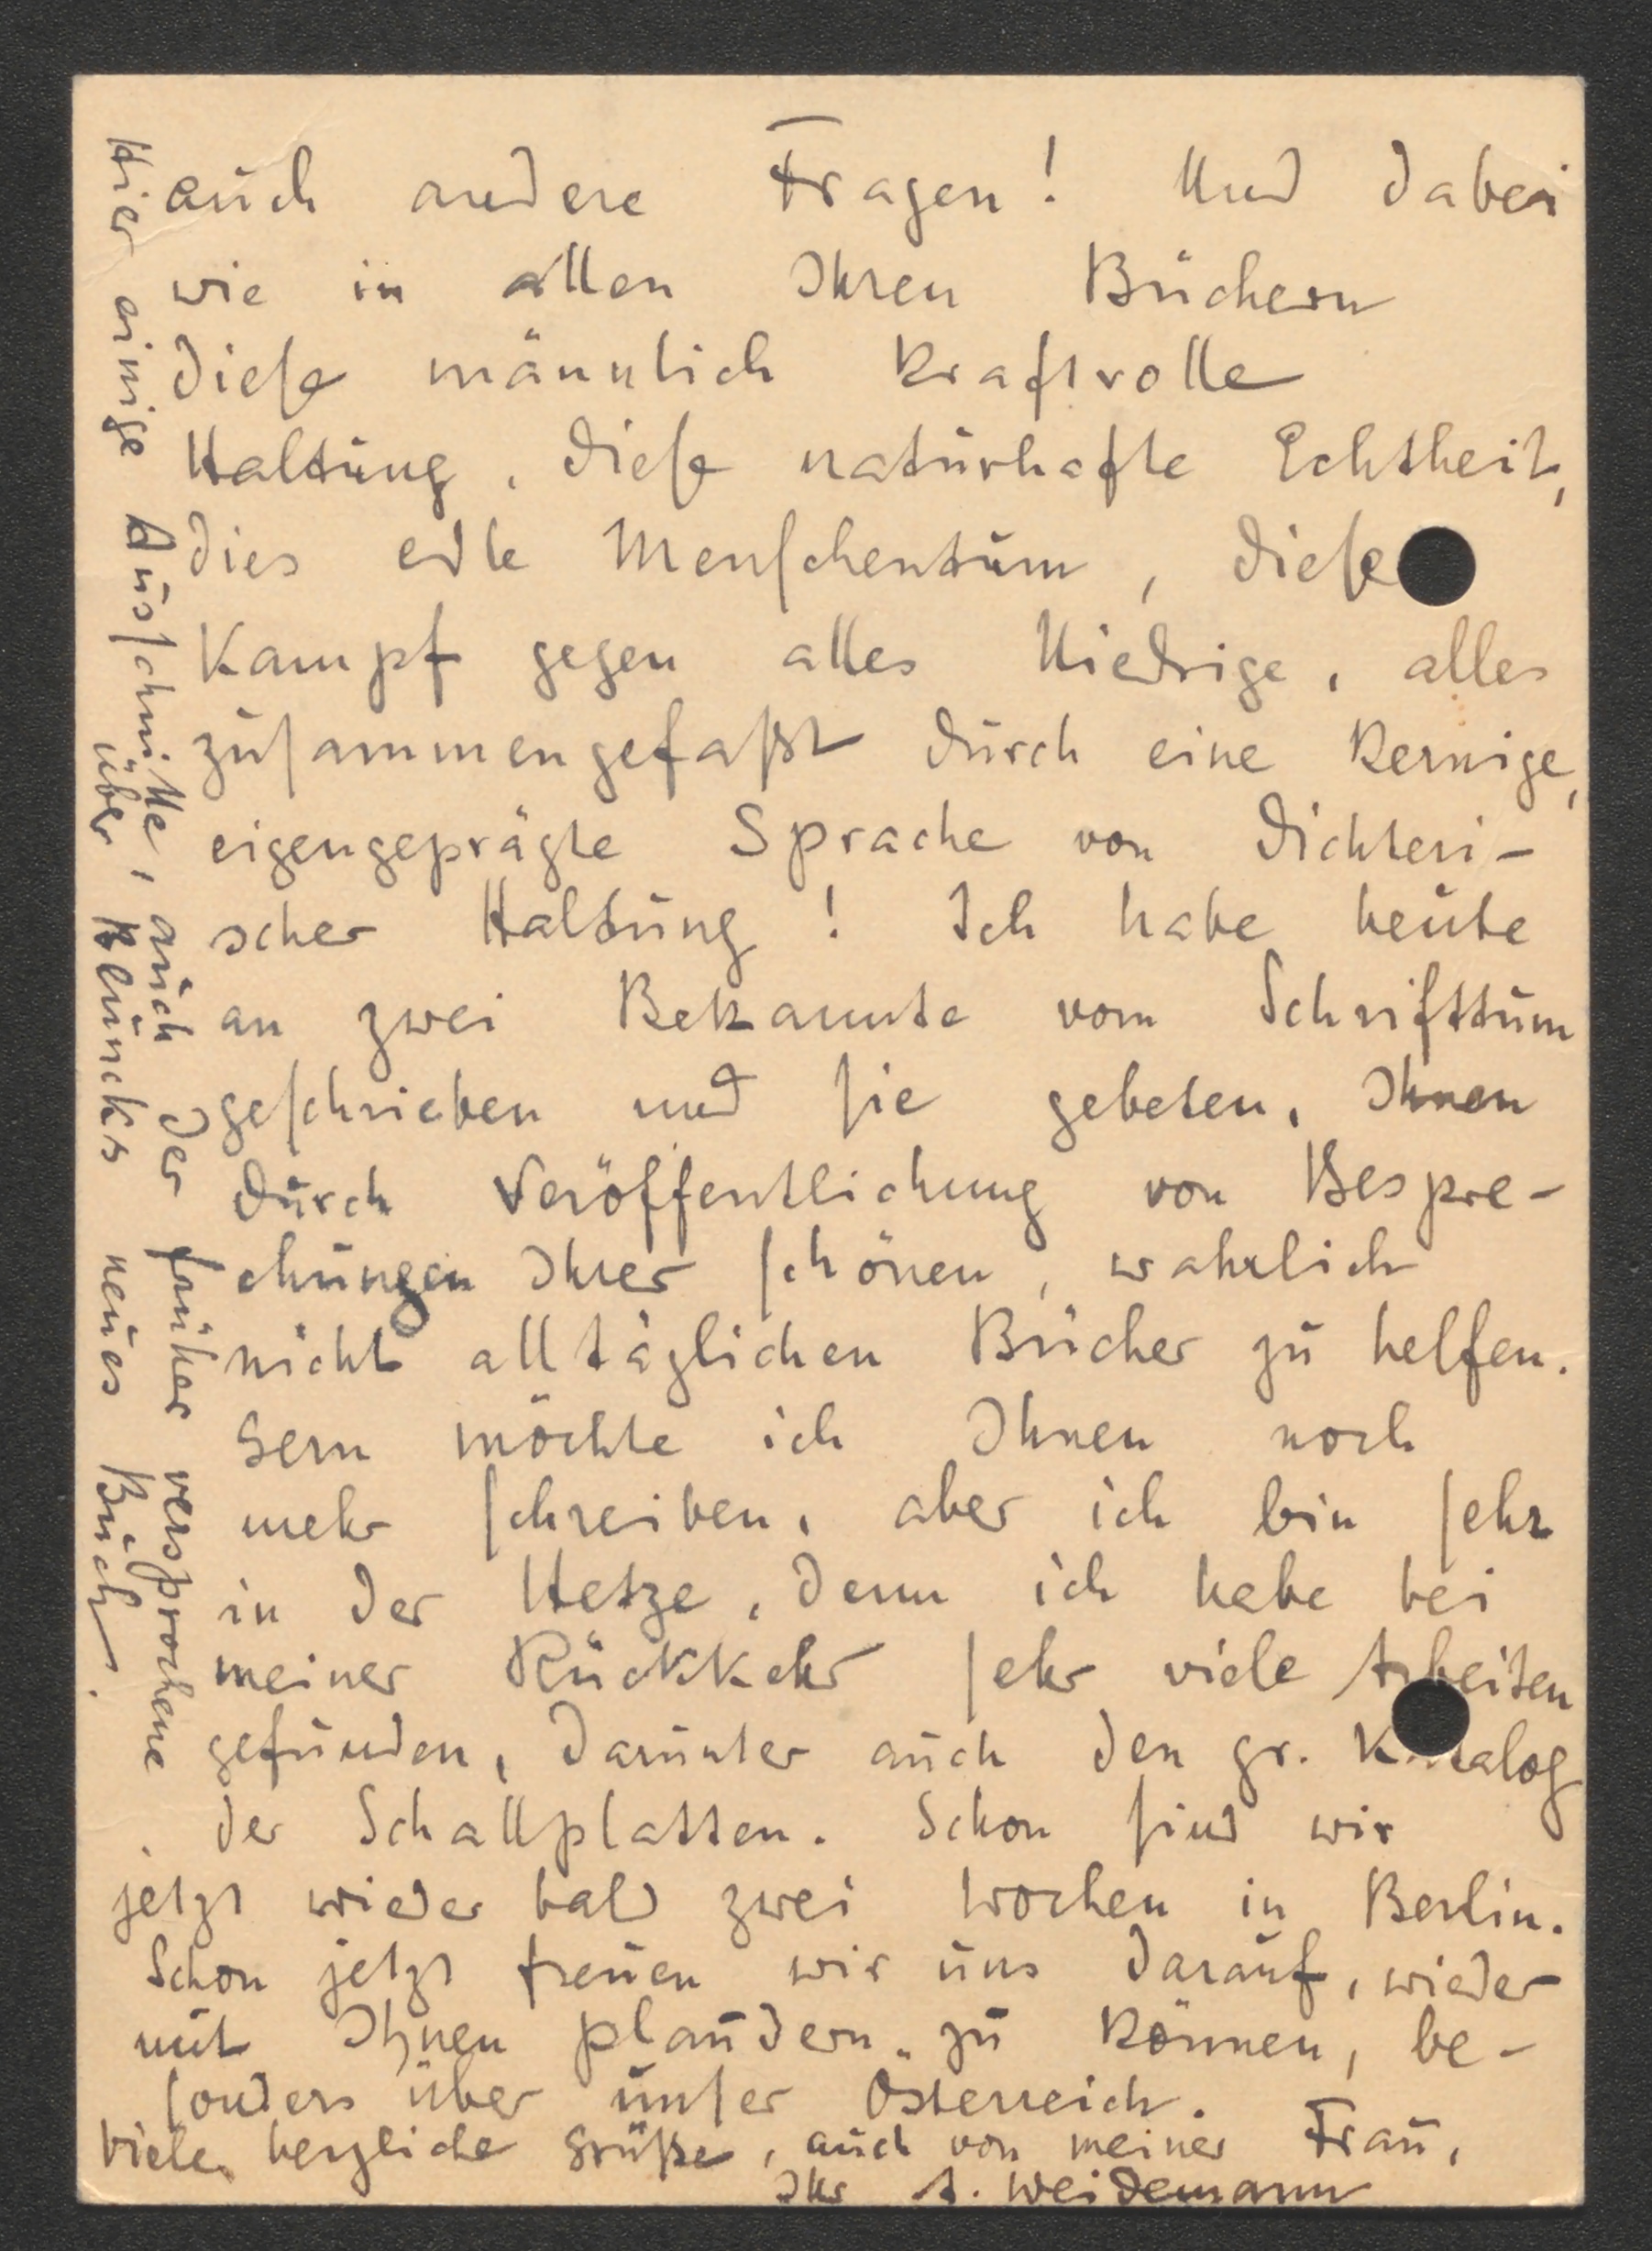 auch andere Fragen! Und dabei
wie in allen Ihren Büchern
diese männlich kraftvolle
Haltung, diese naturhafte Echtheit,
dies edle Menschentum, diese
Kampf gegen alles Niedrige, alles
zusammengefaßt durch eine kernige,
eigengeprägte Sprache von dichteri-
scher Haltung! Ich habe heute
an zwei Bekannte vom Schrifttum
geschrieben und sie gebeten, Ihnen
durch Veröffentlichung von Bespre-
chungen Ihrer schönen, wahrlich
nicht alltäglichen Bücher zu helfen.
Gern möchte ich Ihnen noch
mehr schreiben, aber ich bin sehr
in der Hetze, denn ich habe bei
meiner Rückkehr sehr viele Arbeiten
gefunden, darunter auch den gr. Katalog
der Schallplatten. Schon sind wir
jetzt wieder bald zwei Wochen in Berlin.
Schon jetzt freuen wir uns darauf, wieder
mit Ihnen plaudern zu können, be-
sonders über unser Österreich.
Viele herzliche Grüße, auch von meiner Frau,
Ihr A. Weidemann
Hier einige Ausschnitte, auch der früher versprochene
über Bluncks neues Buch.